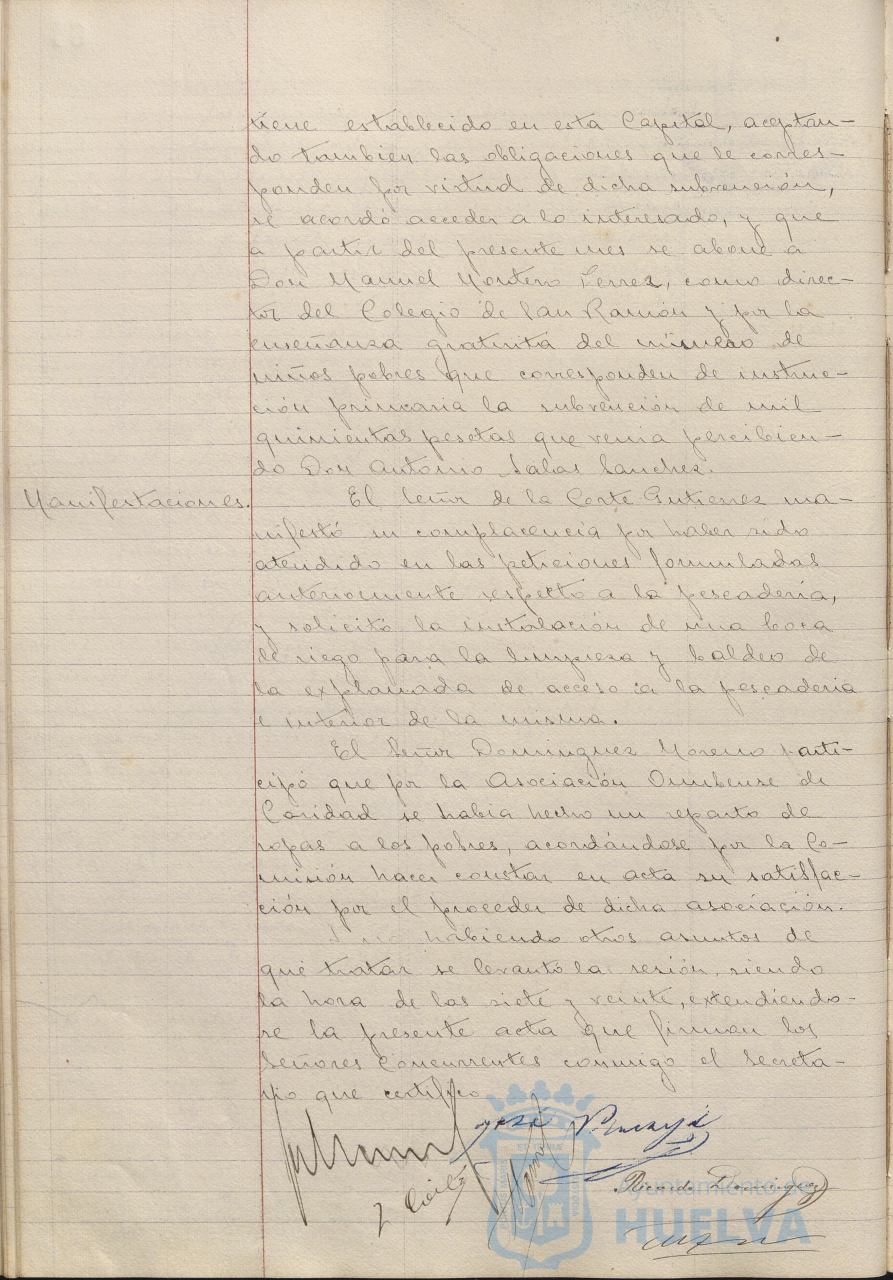 tiene establecido en esta Capital, aceptan-
do tambien las obligaciones que le corres-
ponden por virtud de dicha subvención,
se acordó acceder a lo interesado, y que
a partir del presente mes se abone a
Don Manuel Montero Perrez, como direc-
tor del Colegio de San Ramón y por la
enseñanza gratuita del número de
niños pobres que corresponden de instruc-
ción primaria la subvención de mil
quinientas pesetas que venia percibien-
do Don Antonio Salas Sanchez.
Manifestaciones.
El Señor de la Corte Gutierrez ma-
nifestó su complacencia por haber sido
atendido en las peticiones formuladas
anteriormente respecto a la pescadería,
y solicitó la instalación de una boca
de riego para la limpieza y baldeo de
la explanada de acceso a la pescaderia
e interior de la misma.
El Señor Dominguez Moreno parti-
cipó que por la Asociación Onubense de
Caridad se habia hecho un reparto de
ropas a los pobres, acordándose por la Co-
misión hacer constar en acta su satisfac-
ción por el proceder de dicha asociación.
Y no habiendo otros asuntos de
que tratar se levantó la sesión, siendo
la hora de las siete y veinte, extendiendo-
se la presente acta que firman los
Señores Concurrentes conmigo el Secreta-
rio que certifico.
José
Ricardo Dominguez
Ayuntamiento de
HUELVA